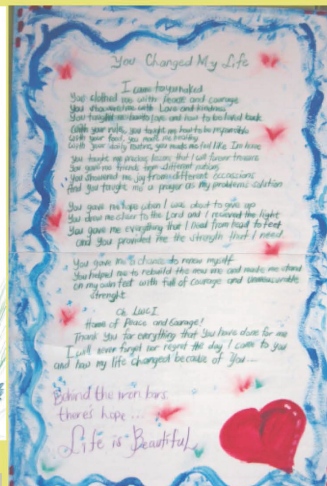 You Changed My Life
I came to you naked
You clothed me with Peace and courage
You showered me with Love and kindness
You taught me how to love and how to be loved back
With your rule, you taught me how to be responsible
With your food, you made me healthy
With your daily routine, you made me feel like I'm home
You taught me precious lessons that I will forever treasure
You gave me friends from different nations
You showered me joy from different occassions
And you taught me a prayer as my problems solution
You gave me hope when I was about to give up
You drew me closer to the Lord and I received the light
You gave me everything that I lived from head to feet
and You provided me the strength that I need
You gave me a chance to renew myself
You helped me to rebuild the new me and made me stand
on my own feet with full of courage and
strenght
Oh
Home of Peace and Courage!
Thank You for everything that You have done for me
I will never forget nor regret the day I came to you
and how my life changed because of You...
Behind the iron bars
there's hope...
Life is Beautiful